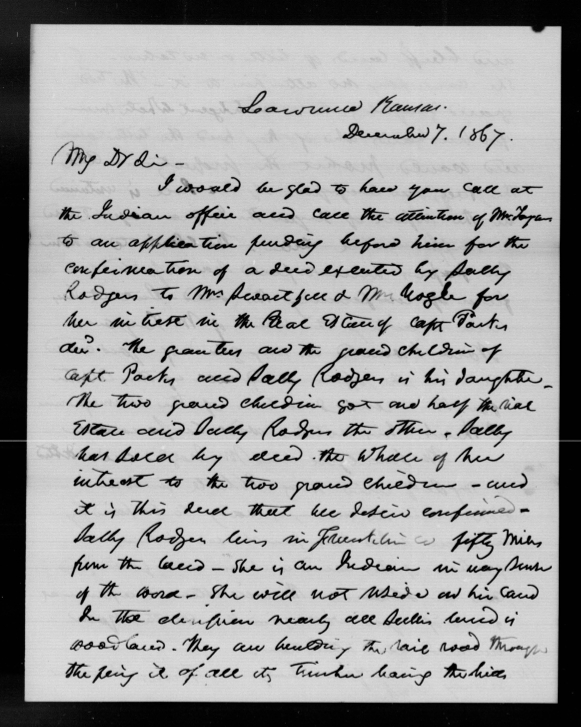 Lawrence Kansas.
December 7. 1867.
My Dr Sir -
I would be glad to have you call at
the Indian office and call the attention of Mr
to an application pending before him for the
confirmation of a deed executed by Sally
Rodgers to Mrs & Mrs Nogle for
her interest in the Real Estate of Capt Parks
decd. The grantees are the grand children of
Capt. Parks and Sally Rodgers is his daughter -
The two grand children got one half the real
Estate and Sally Rodgers the other. Sally
has sold by deed the whole of her
interest to the two grand children - and
it is this deed that we desire confirmed -
Sally Rodgers lives in Franklin co fifty miles
from the land - She is an Indian in every sense
of the word - She will not reside on his land
In the division nearly all Sallie's land is
woodland. They are building the rail road through
the of all its timber